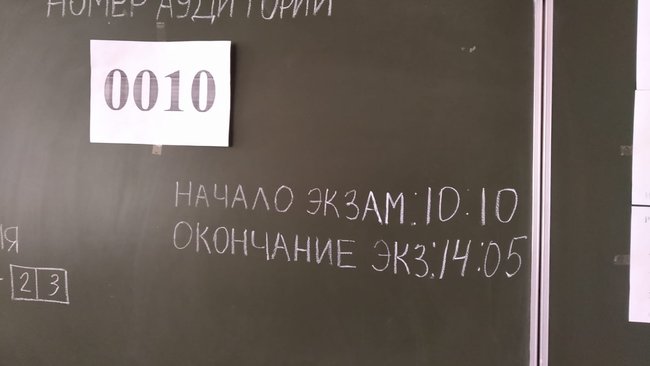 НОМЕР АУДИТОРИИ
0010
НАЧАЛО ЭКЗАМ:10:10
ОКОНЧАНИЕ ЭКЗ:14:05
23